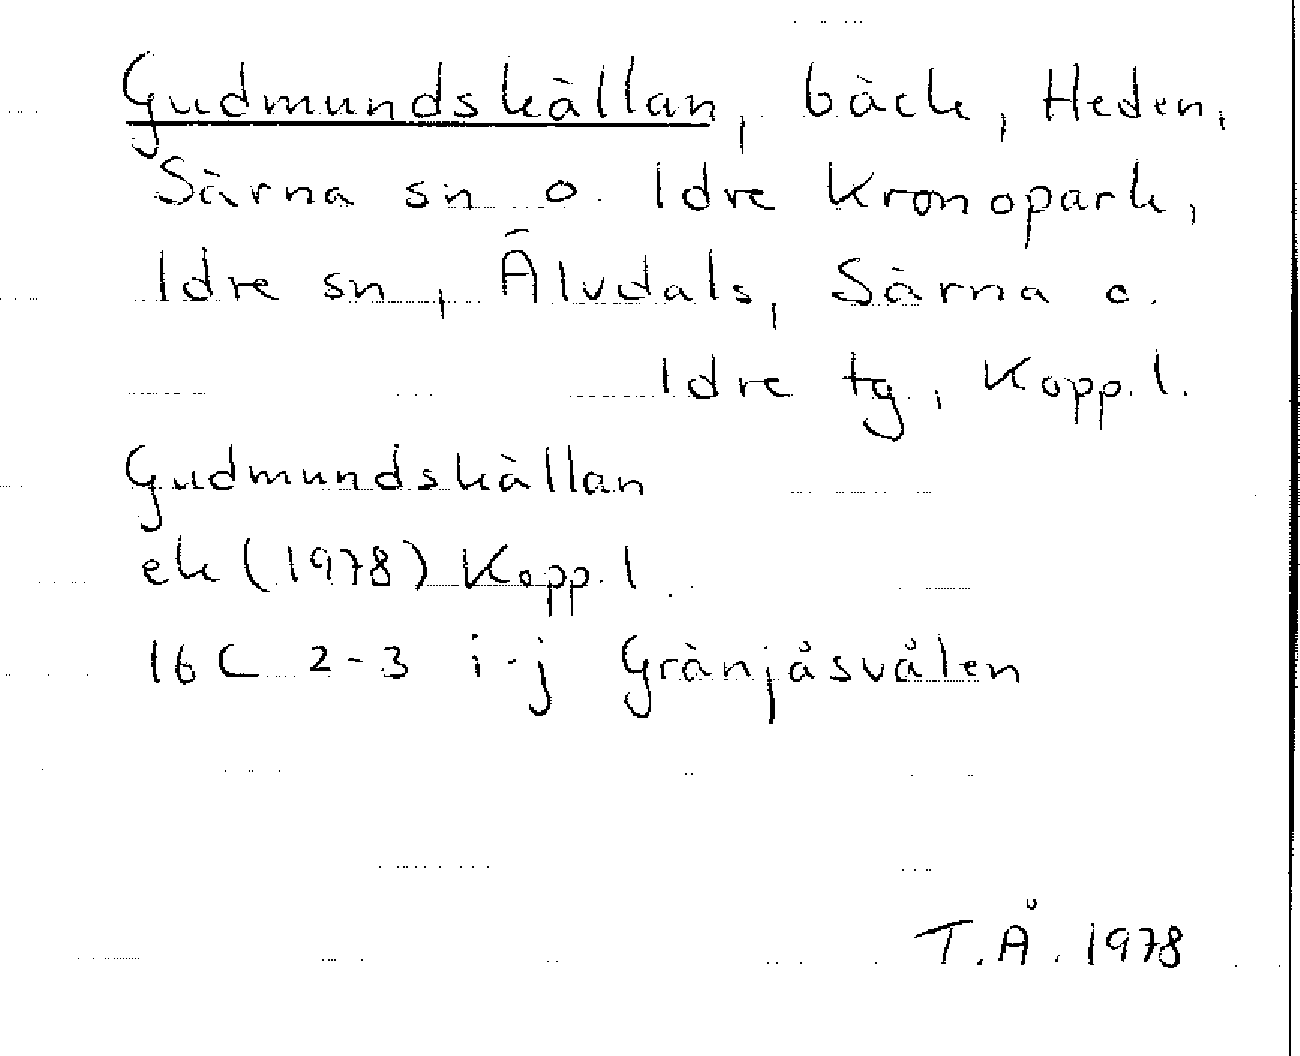 Gudmundskällan, bäck, Heden,
Särna sn o. Idre Kronopark,
Idre sn, Älvdals, Särna o.
Idre tg, Kopp. l.
Gudmundskällan
ek (1978) Kopp. l.
16 C 2-3 i-j Gränjåsvålen
T.Å. 1978